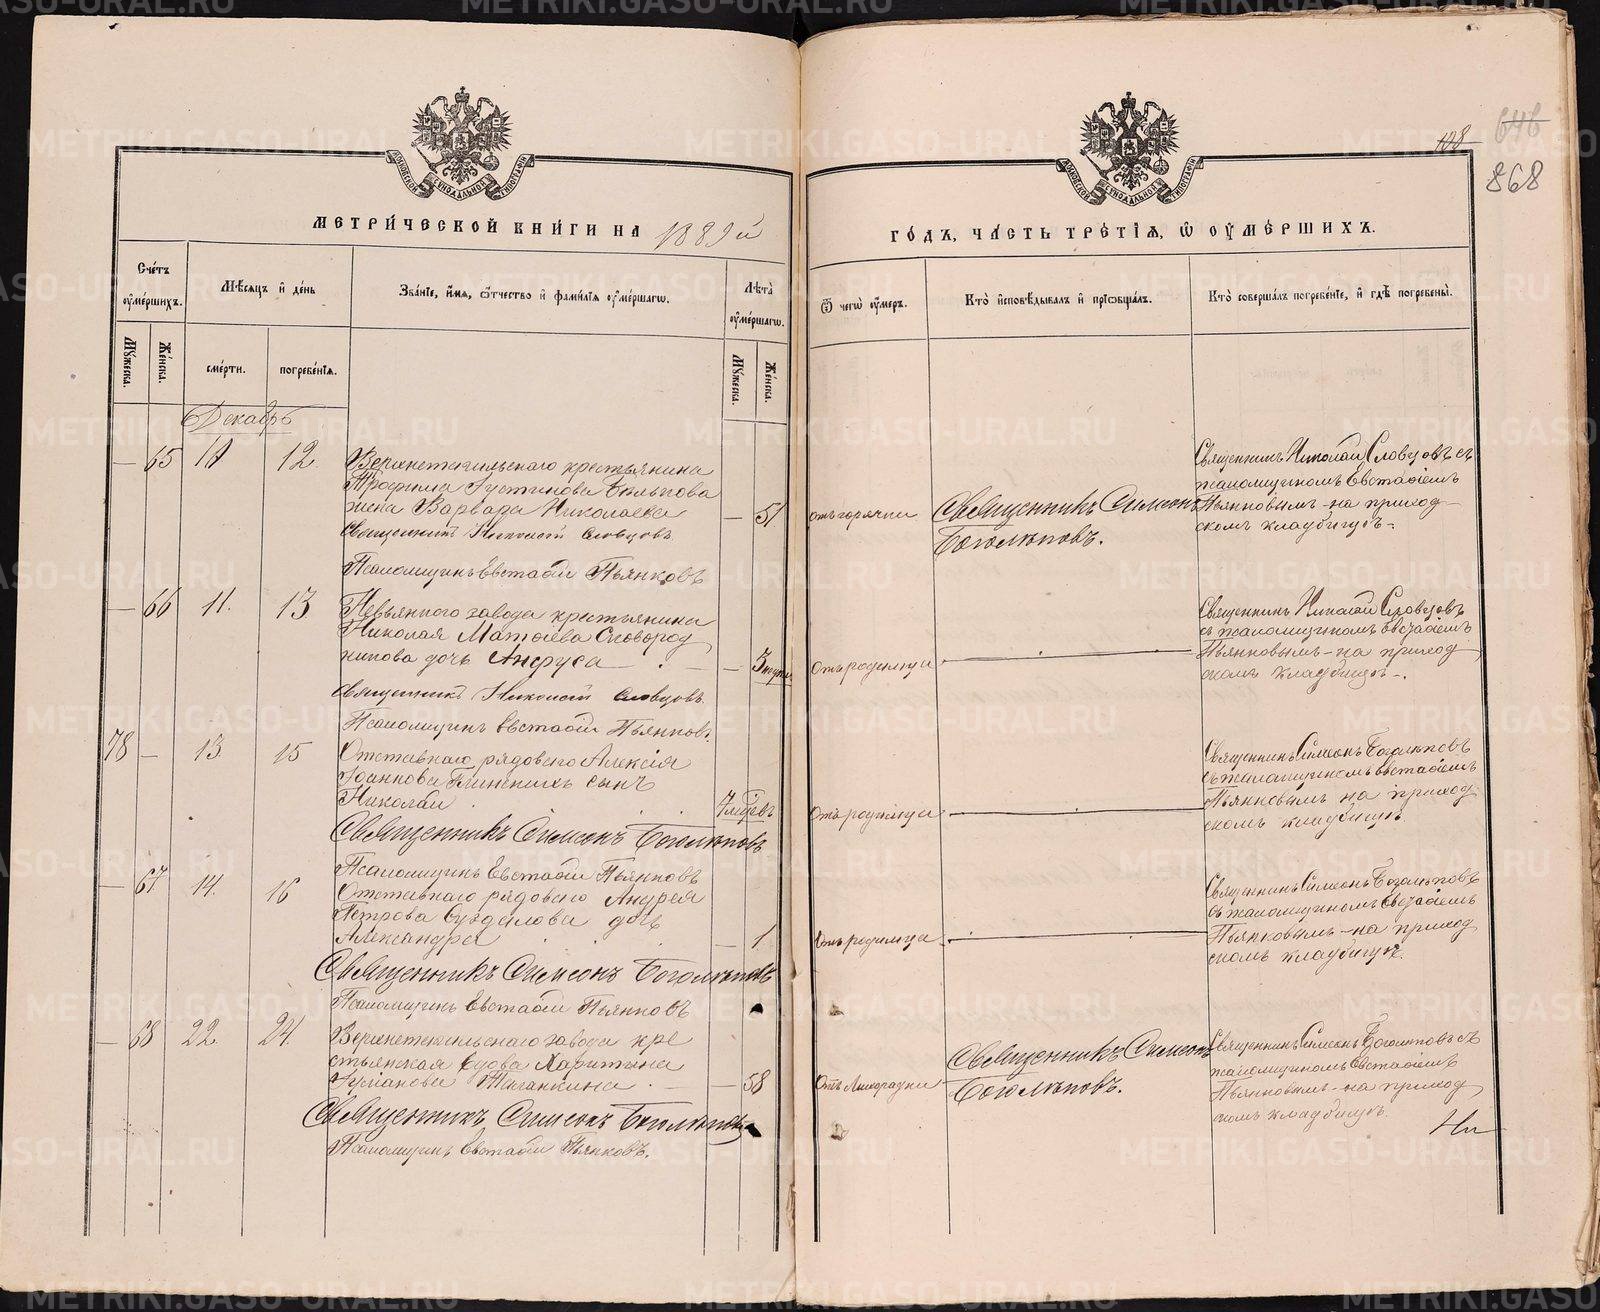 МЕТРИЧЕСКОЙ КНИГИ НА 1889й
ГОДЪ, ЧАСТЬ ТРЕТІЯ, Ѿ ОУМЕРШИХЪ.
108
646
868
Счетъ оумершихъ.
Мѣсяцъ и день
Званіе, имя, ѿтчество и фамилія оумершагѡ.
Лѣта оумершагѡ.
Ѿ чегѡ оумеръ.
Кто исповѣдывалъ и пріѡбщалъ.
Кто совершалъ погребеніе, и гдѣ погребены.
Мужеска.
Женска.
смерти.
погребенія.
Мужеска.
Женска.
Декабрь
— 65 10 12.
Верхнетагильскаго крестьянина
Трофима Густинова Балькова
жена Варвара Николаева — 51
Священникъ Николай Словцовъ
Псаломщикъ Евстафій Пьянковъ
отъ горячки
Священникъ Симеонъ
Боголюповъ.
Священникъ Николай Словцовъ съ
псаломщикомъ Евстафіемъ
Пьянковымъ - на приход-
скомъ кладбищѣ-.
— 66 11. 13
Невьянкого завода крестьянина
Николая Матѳіева Сковород
никова дочь Анфуса — 3 недѣл.
Священникъ Николай Словцовъ.
Псаломщикъ Евстафій Пьянковъ.
Отъ родимца
Священникъ Николай Словцовъ
съ псаломщикомъ Евстафіемъ
Пьянковымъ - на приход
скомъ кладбищѣ-.
78 — 13. 15
Отставнаго рядового Алексія
Іоаннова Глинскихъ сынъ
Николай 7 мѣсяц.
Священникъ Симеонъ Боголюповъ
Псаломщикъ Евстафій Пьянковъ
Отъ родимца
Священникъ Симеонъ Боголюповъ
съ псаломщикомъ Евстафіемъ
Пьянковымъ на приход
скомъ кладбищѣ
— 67 14. 16
Отставнаго рядового Андрея
Петрова Суздалова дочь
Александра — 1
Священникъ Симеонъ Боголюповъ
Псаломщикъ Евстафій Пьянковъ
Отъ родимца
Священникъ Симеонъ Боголюповъ
съ псаломщикомъ Евстафіемъ
Пьянковымъ - на приход
скомъ кладбищѣ.
— 68 22. 24.
Верхнетагильскаго завода кре
стьянская вдова Харитина
Таганкина — 58
Священникъ Симеонъ Боголюповъ
Псаломщикъ Евстафій Пьянковъ.
Отъ Лихорадки
Священникъ Симеонъ
Боголюповъ.
Священникъ Симеонъ Боголюповъ съ
псаломщикомъ Евстафіемъ
Пьянковымъ - на приход
скомъ кладбищѣ.
METRIKI.GASO-URAL.RU